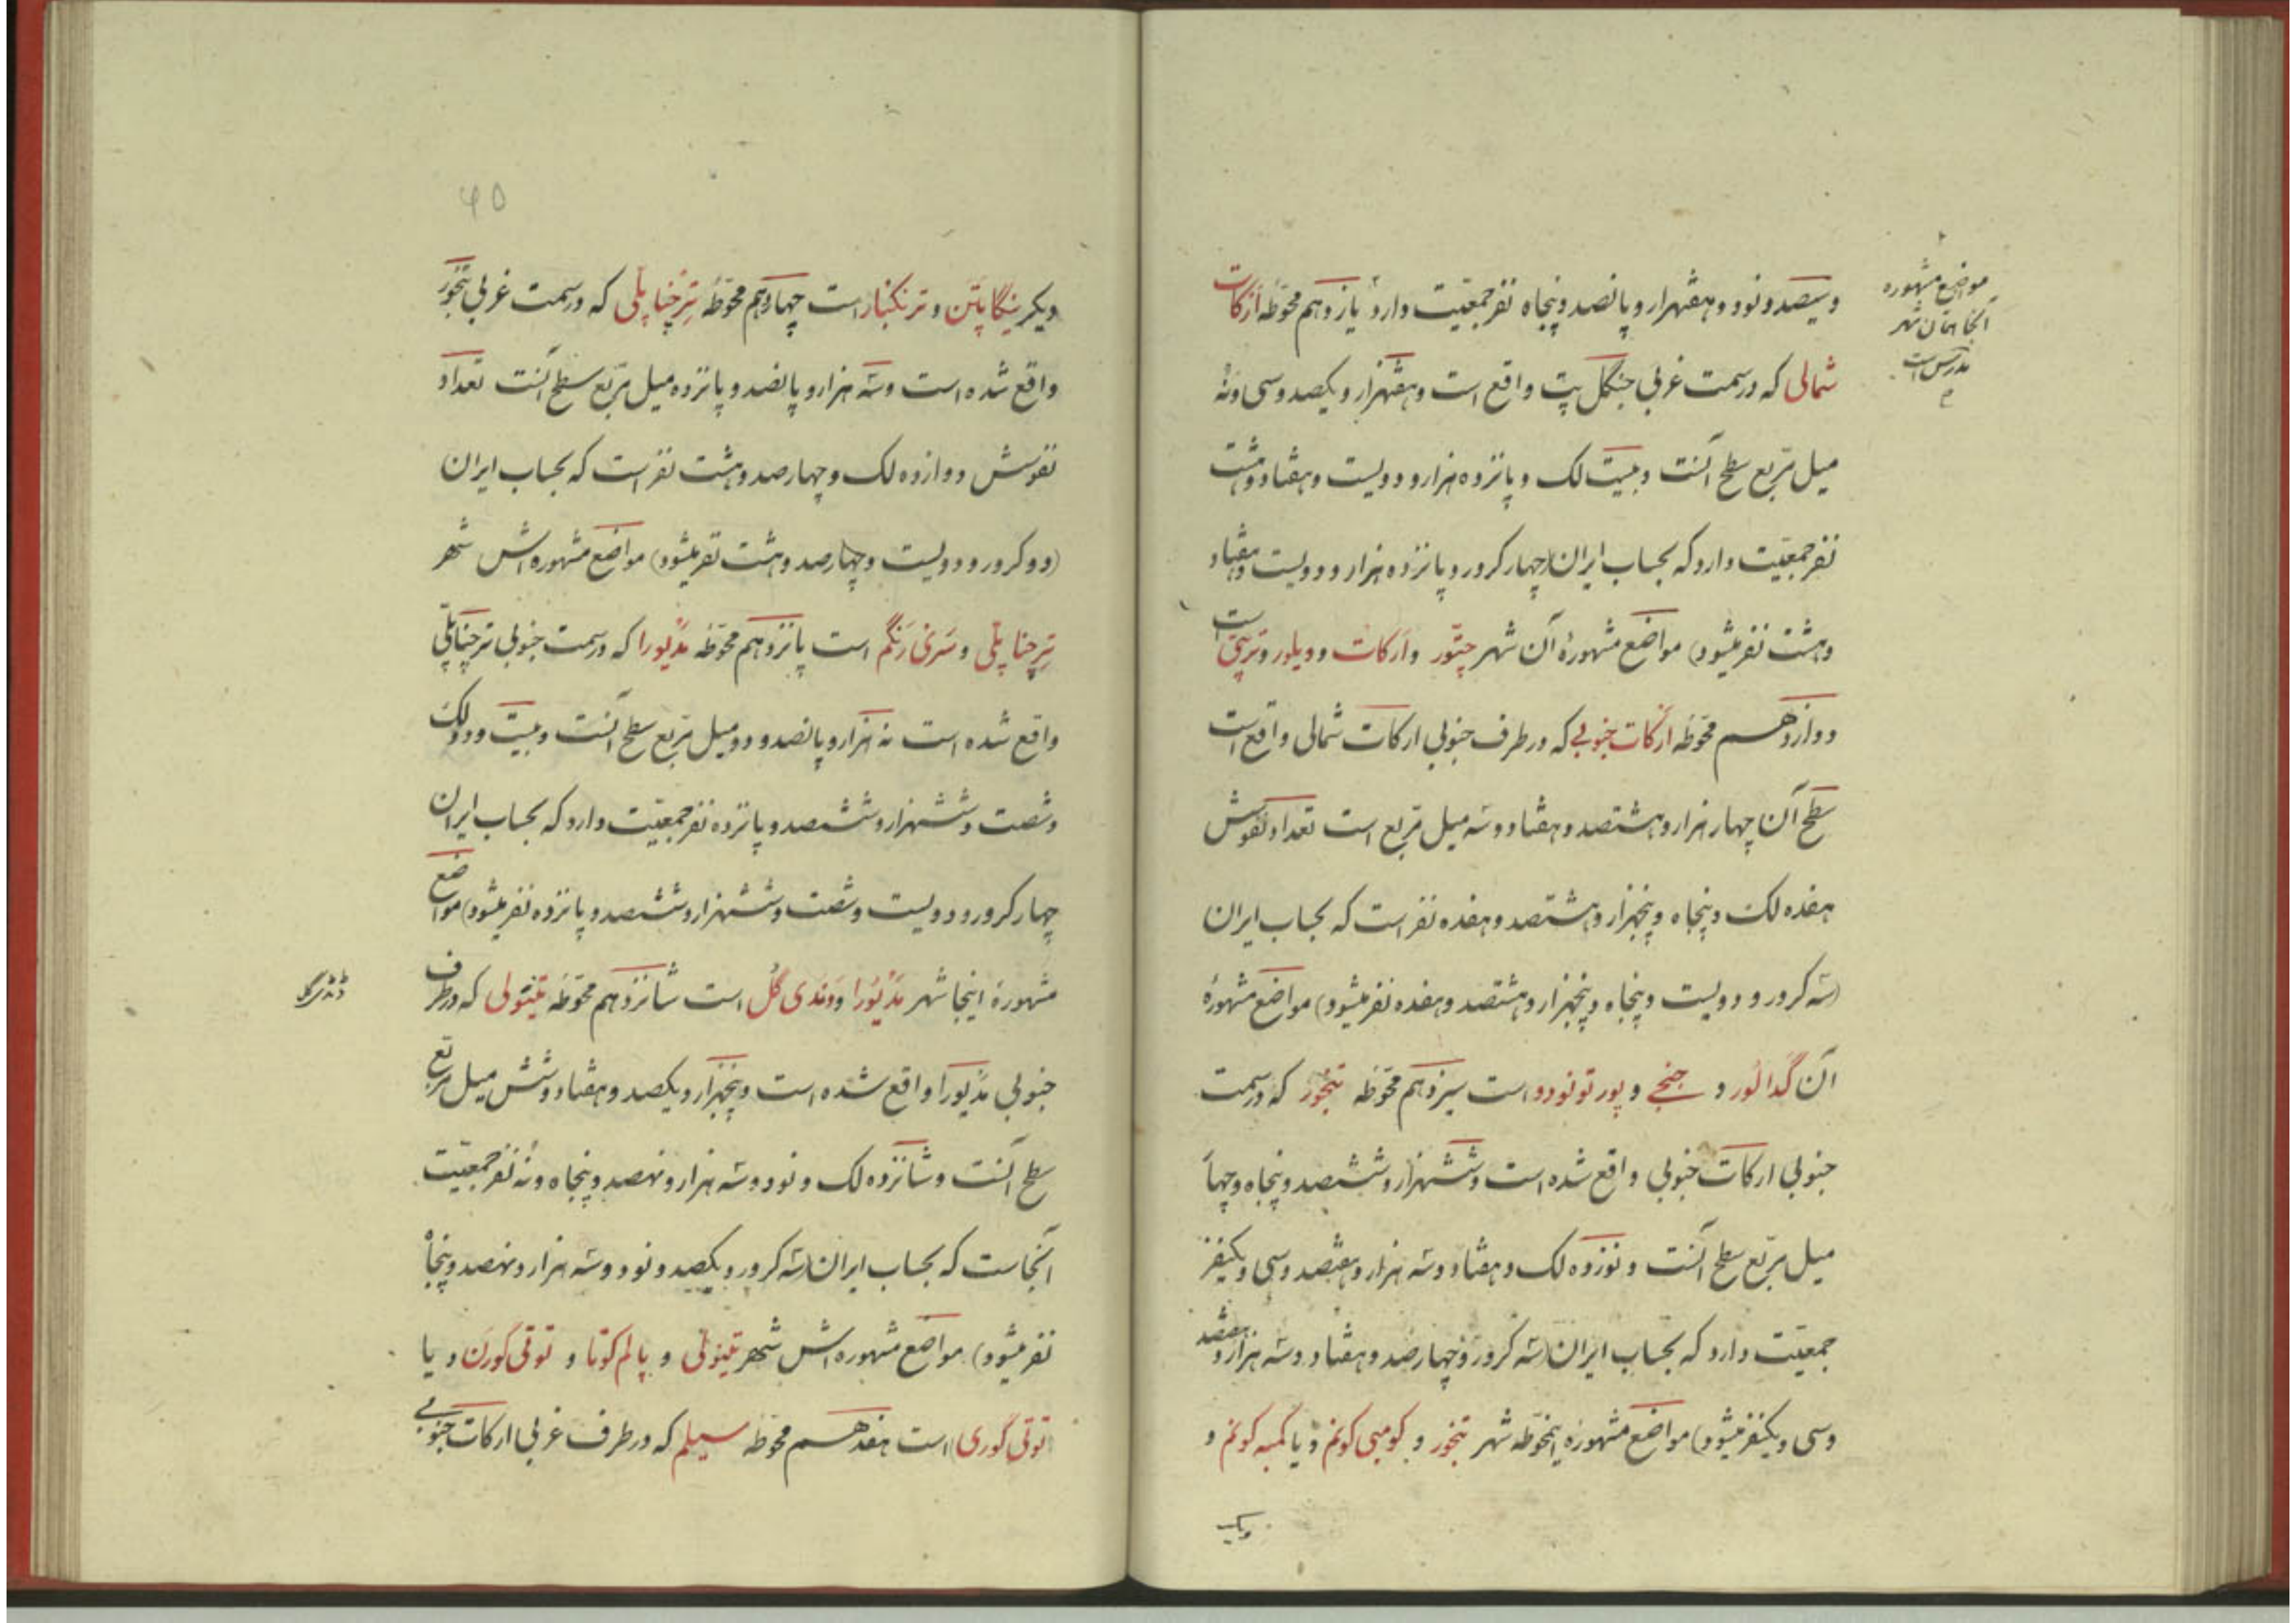 و سیصد و نود و هفهزار و پانصد و پنجاه نفر جمعیّت دارد یازدهم محوّطه ارکات
شمالی که در سمت غربی جنگل پت واقع است و هفتهزار و یکصد و سی و نُه
میل مربّع سطح آنست و بیست لک و پانزده هزار و دویست و هفتاد و هشت
نفر جمعیّت دارد که بحساب ایران (چهار کرور و پانزده هزار و دویست و هفتاد
و هشت نفر میشود) مواضع مشهورهٔ آن شهر چتّور و ارکات و ویلور و ترپتی است
دوازدهم محوّطه ارکات جنوبی که در طرف جنوبی ارکات شمالی واقع است
سطح آن چهار هزار و هشتصد و هفتاد و سه میل مربّع است تعداد نفوسش
هفده لک و پنجاه و پنجهزار و هشتصد و هفده نفر است که بحساب ایران
(سه کرور و دویست و پنجاه و پنجهزار و هشتصد و هفده نفر میشود) مواضع مشهورهٔ
آن گدالور و جنجی و پورتونودو است سیزدهم محوّطه تنجور که در سمت
جنوبی ارکات جنوبی واقع شده است و ششهزار و ششصد و پنجاه و چهار
میل مربّع سطح آنست و نوزده لک و هفتاد و سه هزار و هفتصد و سی و یکنفر
جمعیّت دارد که بحساب ایران (سه کرور و چهارصد و هفتاد و سه هزار و هفتصد
و سی و یکنفر میشود) مواضع مشهورهٔ اینمحوّطه شهر تنجور و کومبی کونم و یا کمبه کونم و
دیگر
مواضع مشهوره
آنجا همان شهر
مدرس است
۶۵
دیگر نیگاپاتن و ترنکبار است چهاردهم محوّطهٔ ترچناپلی که در سمت غربی تنجور
واقع شده است و سه هزار و پانصد و پانزده میل مربّع سطح آنست تعداد
نفوسش دوازده لک و چهارصد و هشت نفر است که بحساب ایران
(دو کرور و دویست و چهارصد و هشت نفر میشود) مواضع مشهوره‌اش شهر
ترچناپلی و سری رنگم است پانزدهم محوّطه مدیورا که در سمت جنوبی ترچناپلی
واقع شده است نه هزار و پانصد و دو میل مربّع سطح آنست و بیست و دو لک
و شصت و ششهزار و ششصد و پانزده نفر جمعیّت دارد که بحساب ایران
چهار کرور و دویست و شصت و ششهزار و ششصد و پانزده نفر میشود) مواضع
مشهورهٔ اینجا شهر مدیورا و وندی گل است شانزدهم محوّطه تینولی که در طرف
جنوبی مدیورا واقع شده است و پنجهزار و یکصد و هفتاد و شش میل مربّع
سطح آنست و شانزده لک و نود و سه هزار و نهصد و پنجاه و نُه نفر جمعیّت
آنجاست که بحساب ایران (سه کرور و یکصد و نود و سه هزار و نهصد و پنجاه
نفر میشود) مواضع مشهوره‌اش شهر تینولی و پالم کوتا و توتی گورن و یا
(توتی گوری) است هفدهم محوّطه سیلم که در طرف غربی ارکات جنوبی